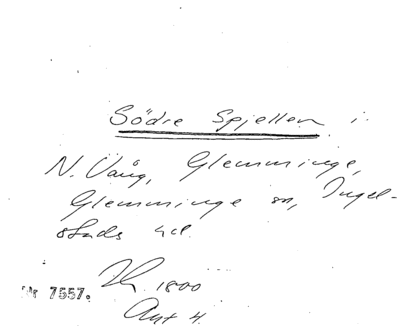 Södre Spjellen i
N. Vång, Glemminge,
Glemminge sn, Ingel-
stads hd.
1800
Nr 7557.
Akt 4.